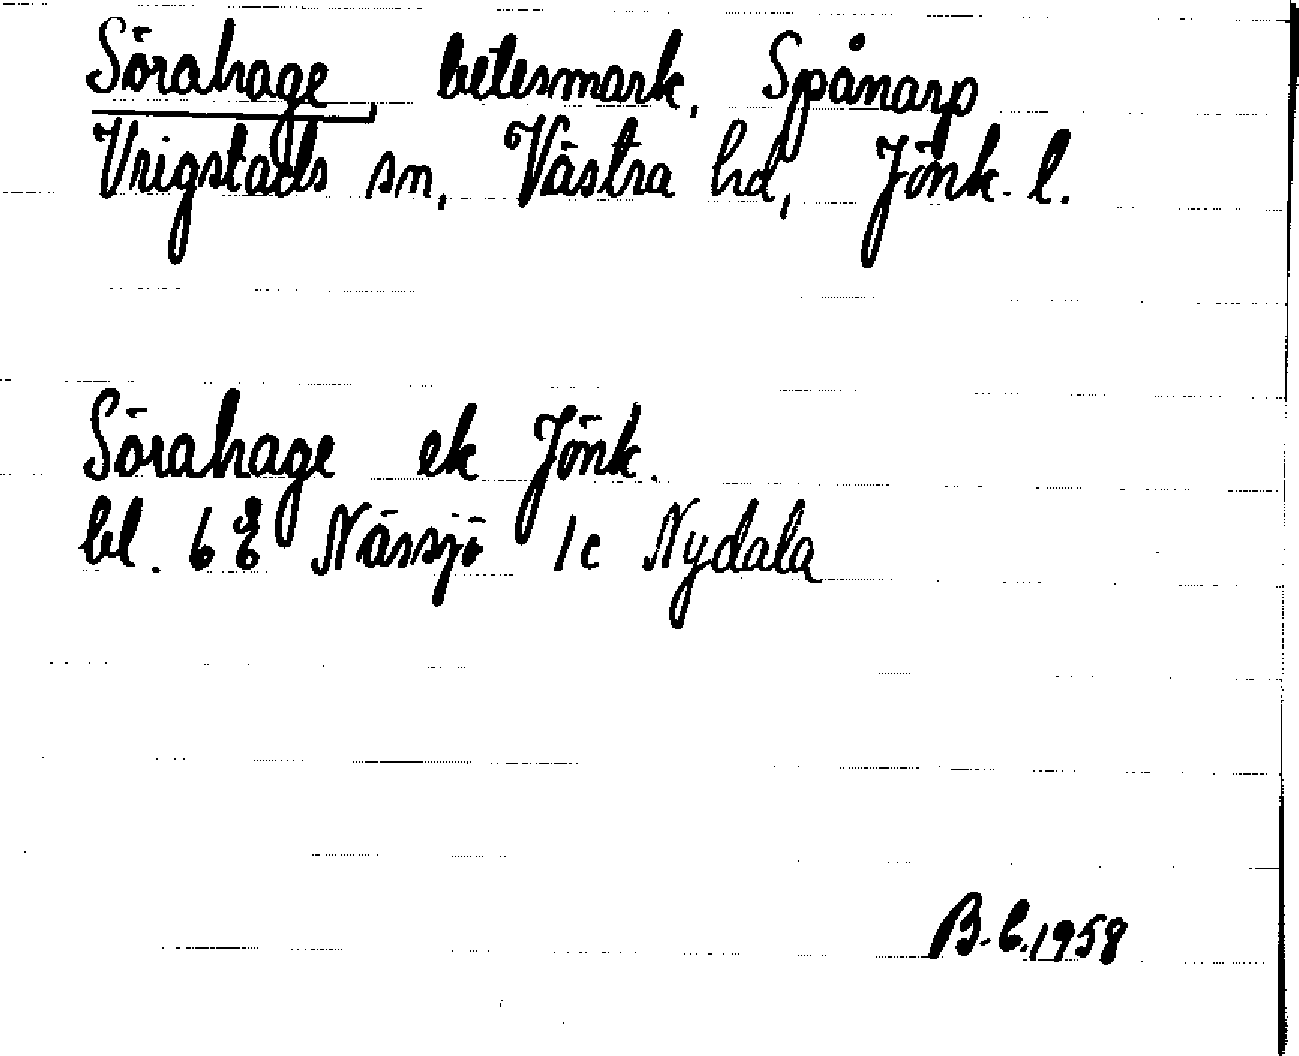 Sörahage, betesmark, Spånarp
Vrigstads sn, Västra hd, Jönk. l.
Sörahage ek Jönk.
bl. 6E Nässjö 1c Nydala
B.C. 1958